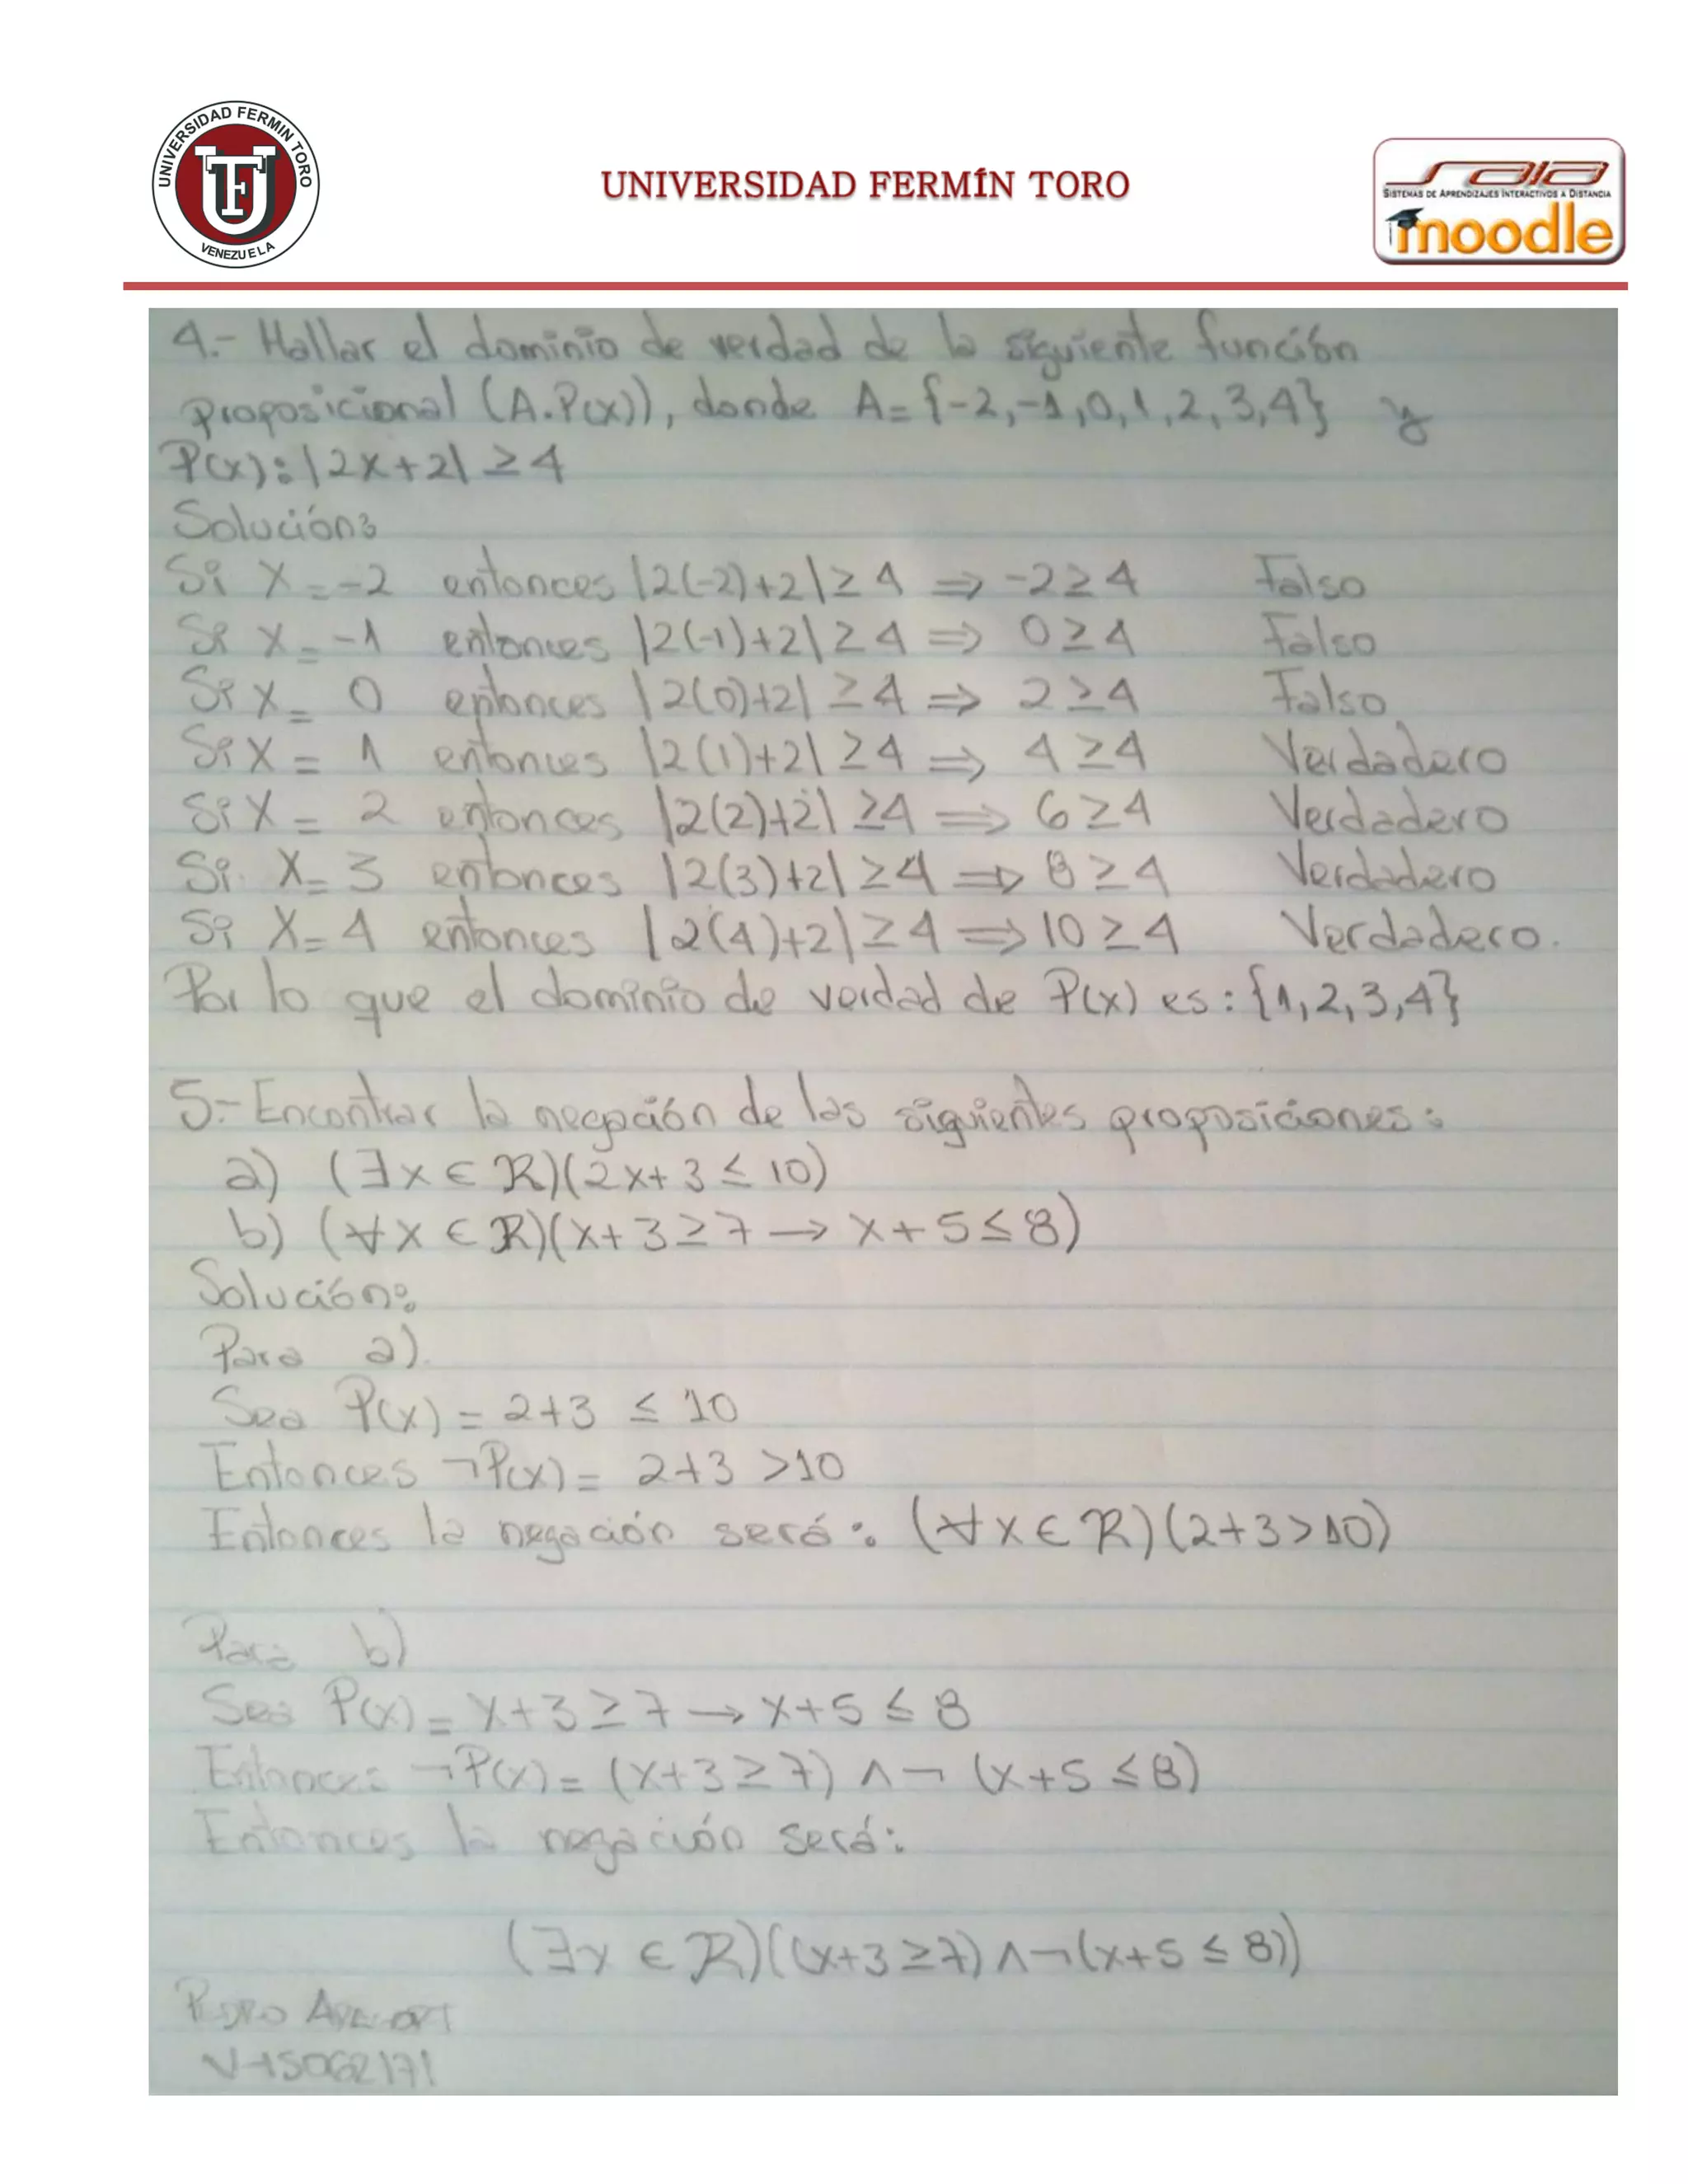 UNIVERSIDAD FERMIN TORO
VENEZUELA
UNIVERSIDAD FERMÍN TORO
saia
SISTEMAS DE APRENDIZAJES INTERACTIVOS A DISTANCIA
moodle
4.- Hallar el dominio de verdad de la siguiente función
proposicional (A.P(x)), donde A={-2,-1,0,1,2,3,4} y
P(x):|2x+2| ≥ 4
Solución:
Si X=-2 entonces |2(-2)+2| ≥ 4 ⇒ -2 ≥ 4 Falso
Si X=-1 entonces |2(-1)+2| ≥ 4 ⇒ 0 ≥ 4 Falso
Si X= 0 entonces |2(0)+2| ≥ 4 ⇒ 2 ≥ 4 Falso
Si X= 1 entonces |2(1)+2| ≥ 4 ⇒ 4 ≥ 4 Verdadero
Si X= 2 entonces |2(2)+2| ≥ 4 ⇒ 6 ≥ 4 Verdadero
Si X= 3 entonces |2(3)+2| ≥ 4 ⇒ 8 ≥ 4 Verdadero
Si X= 4 entonces |2(4)+2| ≥ 4 ⇒ 10 ≥ 4 Verdadero.
Por lo que el dominio de verdad de P(x) es: {1,2,3,4}
5.- Encontrar la negación de las siguientes proposiciones:
a) (∃x ∈ R)(2x+3 ≤ 10)
b) (∀x ∈ R)(x+3 ≥ 7 → x+5 ≤ 8)
Solución:
Para a).
Sea P(x) = 2+3 ≤ 10
Entonces ¬P(x) = 2+3 >10
Entonces la negación será: (∀x ∈ R)(2+3>10)
Para b)
Sea P(x) = x+3 ≥ 7 → x+5 ≤ 8
Entonces ¬P(x) = (x+3 ≥ 7) ∧ ¬ (x+5 ≤ 8)
Entonces la negación será:
(∃x ∈ R)((x+3 ≥ 7) ∧ ¬(x+5 ≤ 8))
V-15062171